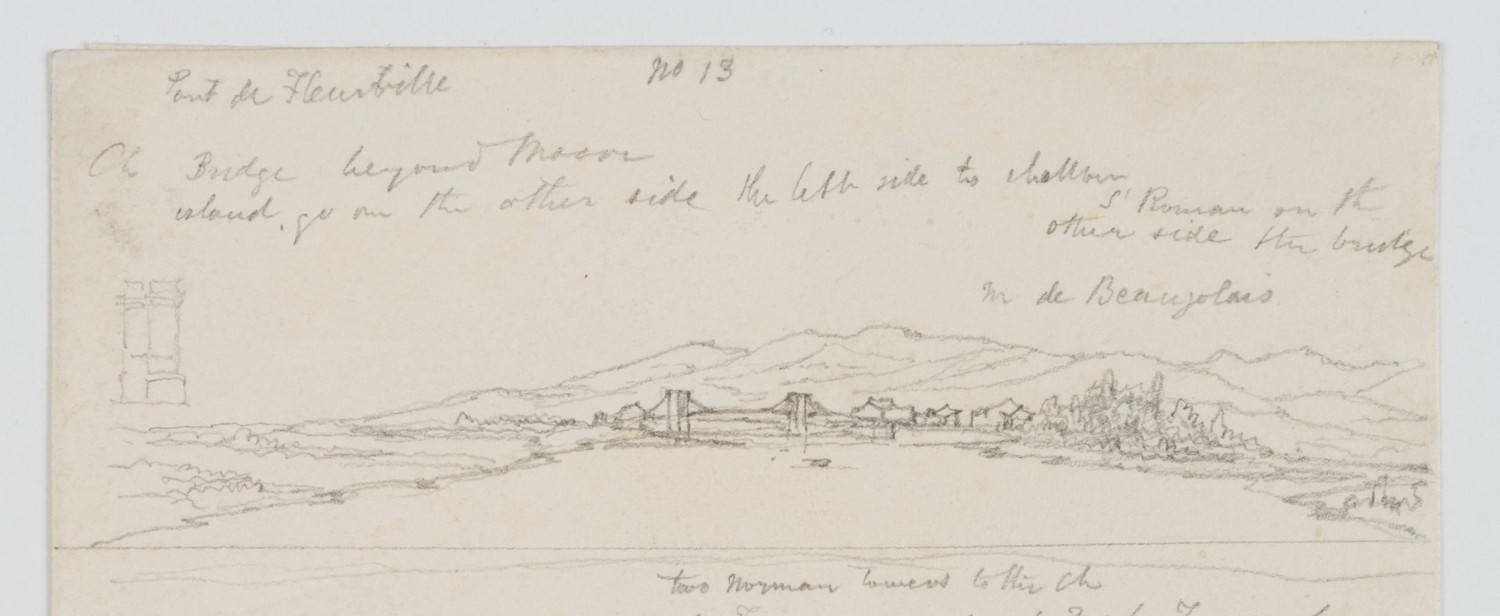 Pont de Fleurville
No 13
Ch Bridge beyond Macon
island. go on the other side the left side to shallow
St Roman on the
other side the bridge
M de Beaujolais
two Norman towers to the Ch